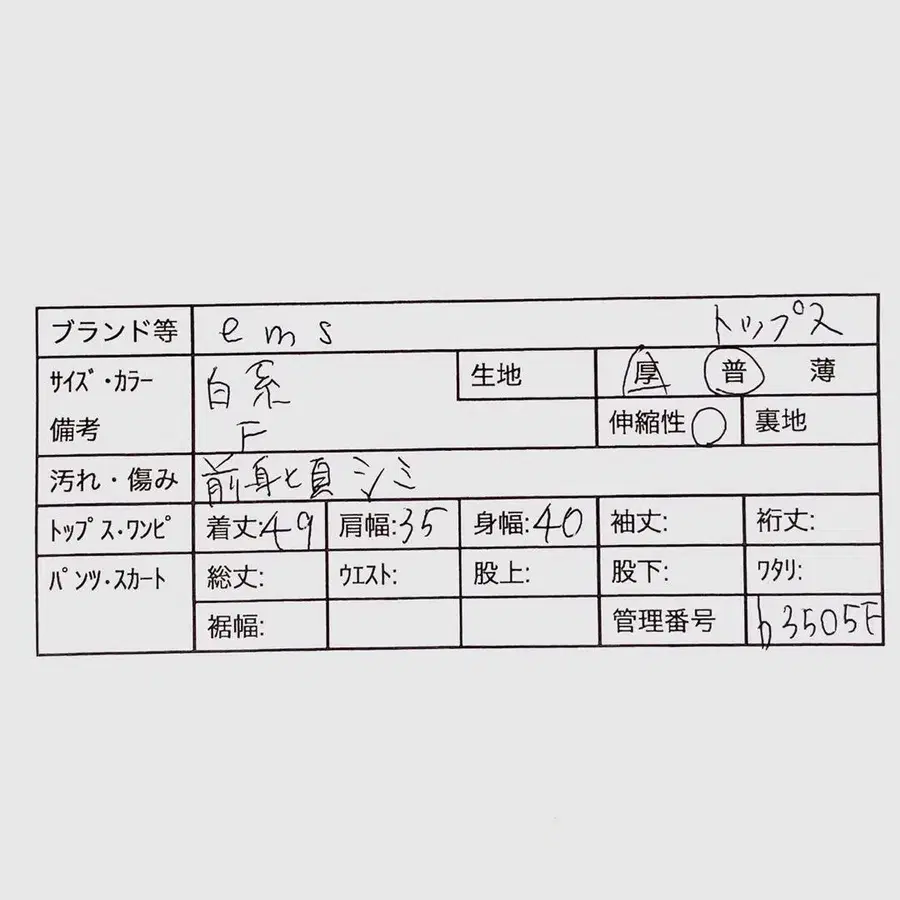 ブランド等 ems トップス
サイズ・カラー 白系 生地 厚 普 薄
備考 F 伸縮性 ○ 裏地
汚れ・傷み 前身と肩シミ
トップス・ワンピ 着丈:49 肩幅:35 身幅:40 袖丈: 裄丈:
パンツ・スカート 総丈: ウエスト: 股上: 股下: ワタリ:
裾幅: 管理番号 b3505F